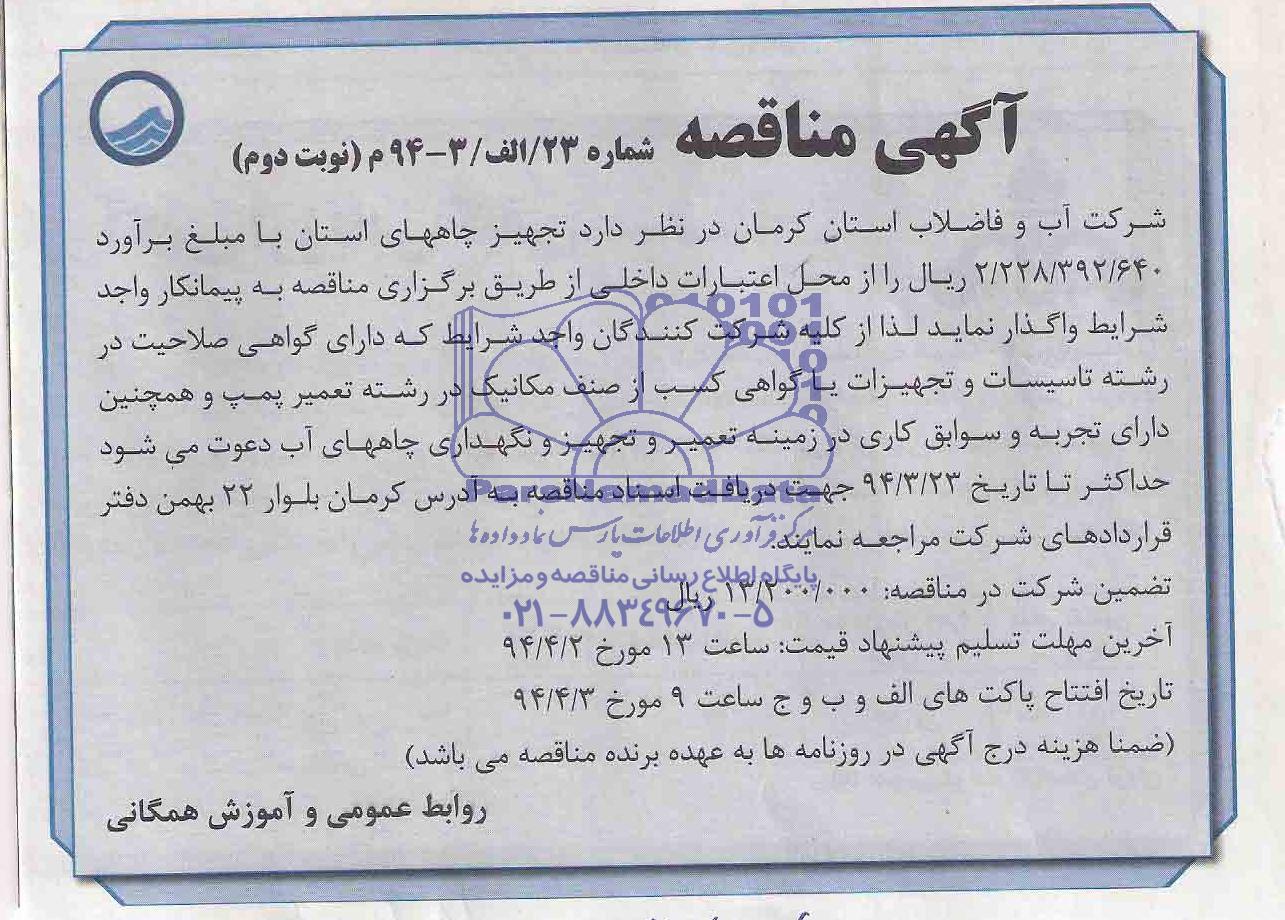 آگهی مناقصه شماره ۲۳/الف/۳-۹۴ م (نوبت دوم)
شرکت آب و فاضلاب استان کرمان در نظر دارد تجهیز چاههای استان با مبلغ برآورد
۲/۲۲۸/۳۹۲/۶۴۰ ریال را از محل اعتبارات داخلی از طریق برگزاری مناقصه به پیمانکار واجد
شرایط واگذار نماید لذا از کلیه شرکت کنندگان واجد شرایط که دارای گواهی صلاحیت در
رشته تاسیسات و تجهیزات یا گواهی کسب از صنف مکانیک در رشته تعمیر پمپ و همچنین
دارای تجربه و سوابق کاری در زمینه تعمیر و تجهیز و نگهداری چاههای آب دعوت می شود
حداکثر تا تاریخ ۹۴/۳/۲۳ جهت دریافت اسناد مناقصه به آدرس کرمان بلوار ۲۲ بهمن دفتر
قراردادهای شرکت مراجعه نمایند.
مرکز فرآوری اطلاعات پارس نماد داده ها
پایگاه اطلاع رسانی مناقصه و مزایده
تضمین شرکت در مناقصه: ۱۳/۲۰۰/۰۰۰ ریال
۰۲۱-۸۸۳۴۹۶۷۰-۵
آخرین مهلت تسلیم پیشنهاد قیمت: ساعت ۱۳ مورخ ۹۴/۴/۲
تاریخ افتتاح پاکت های الف و ب و ج ساعت ۹ مورخ ۹۴/۴/۳
(ضمنا هزینه درج آگهی در روزنامه ها به عهده برنده مناقصه می باشد)
روابط عمومی و آموزش همگانی